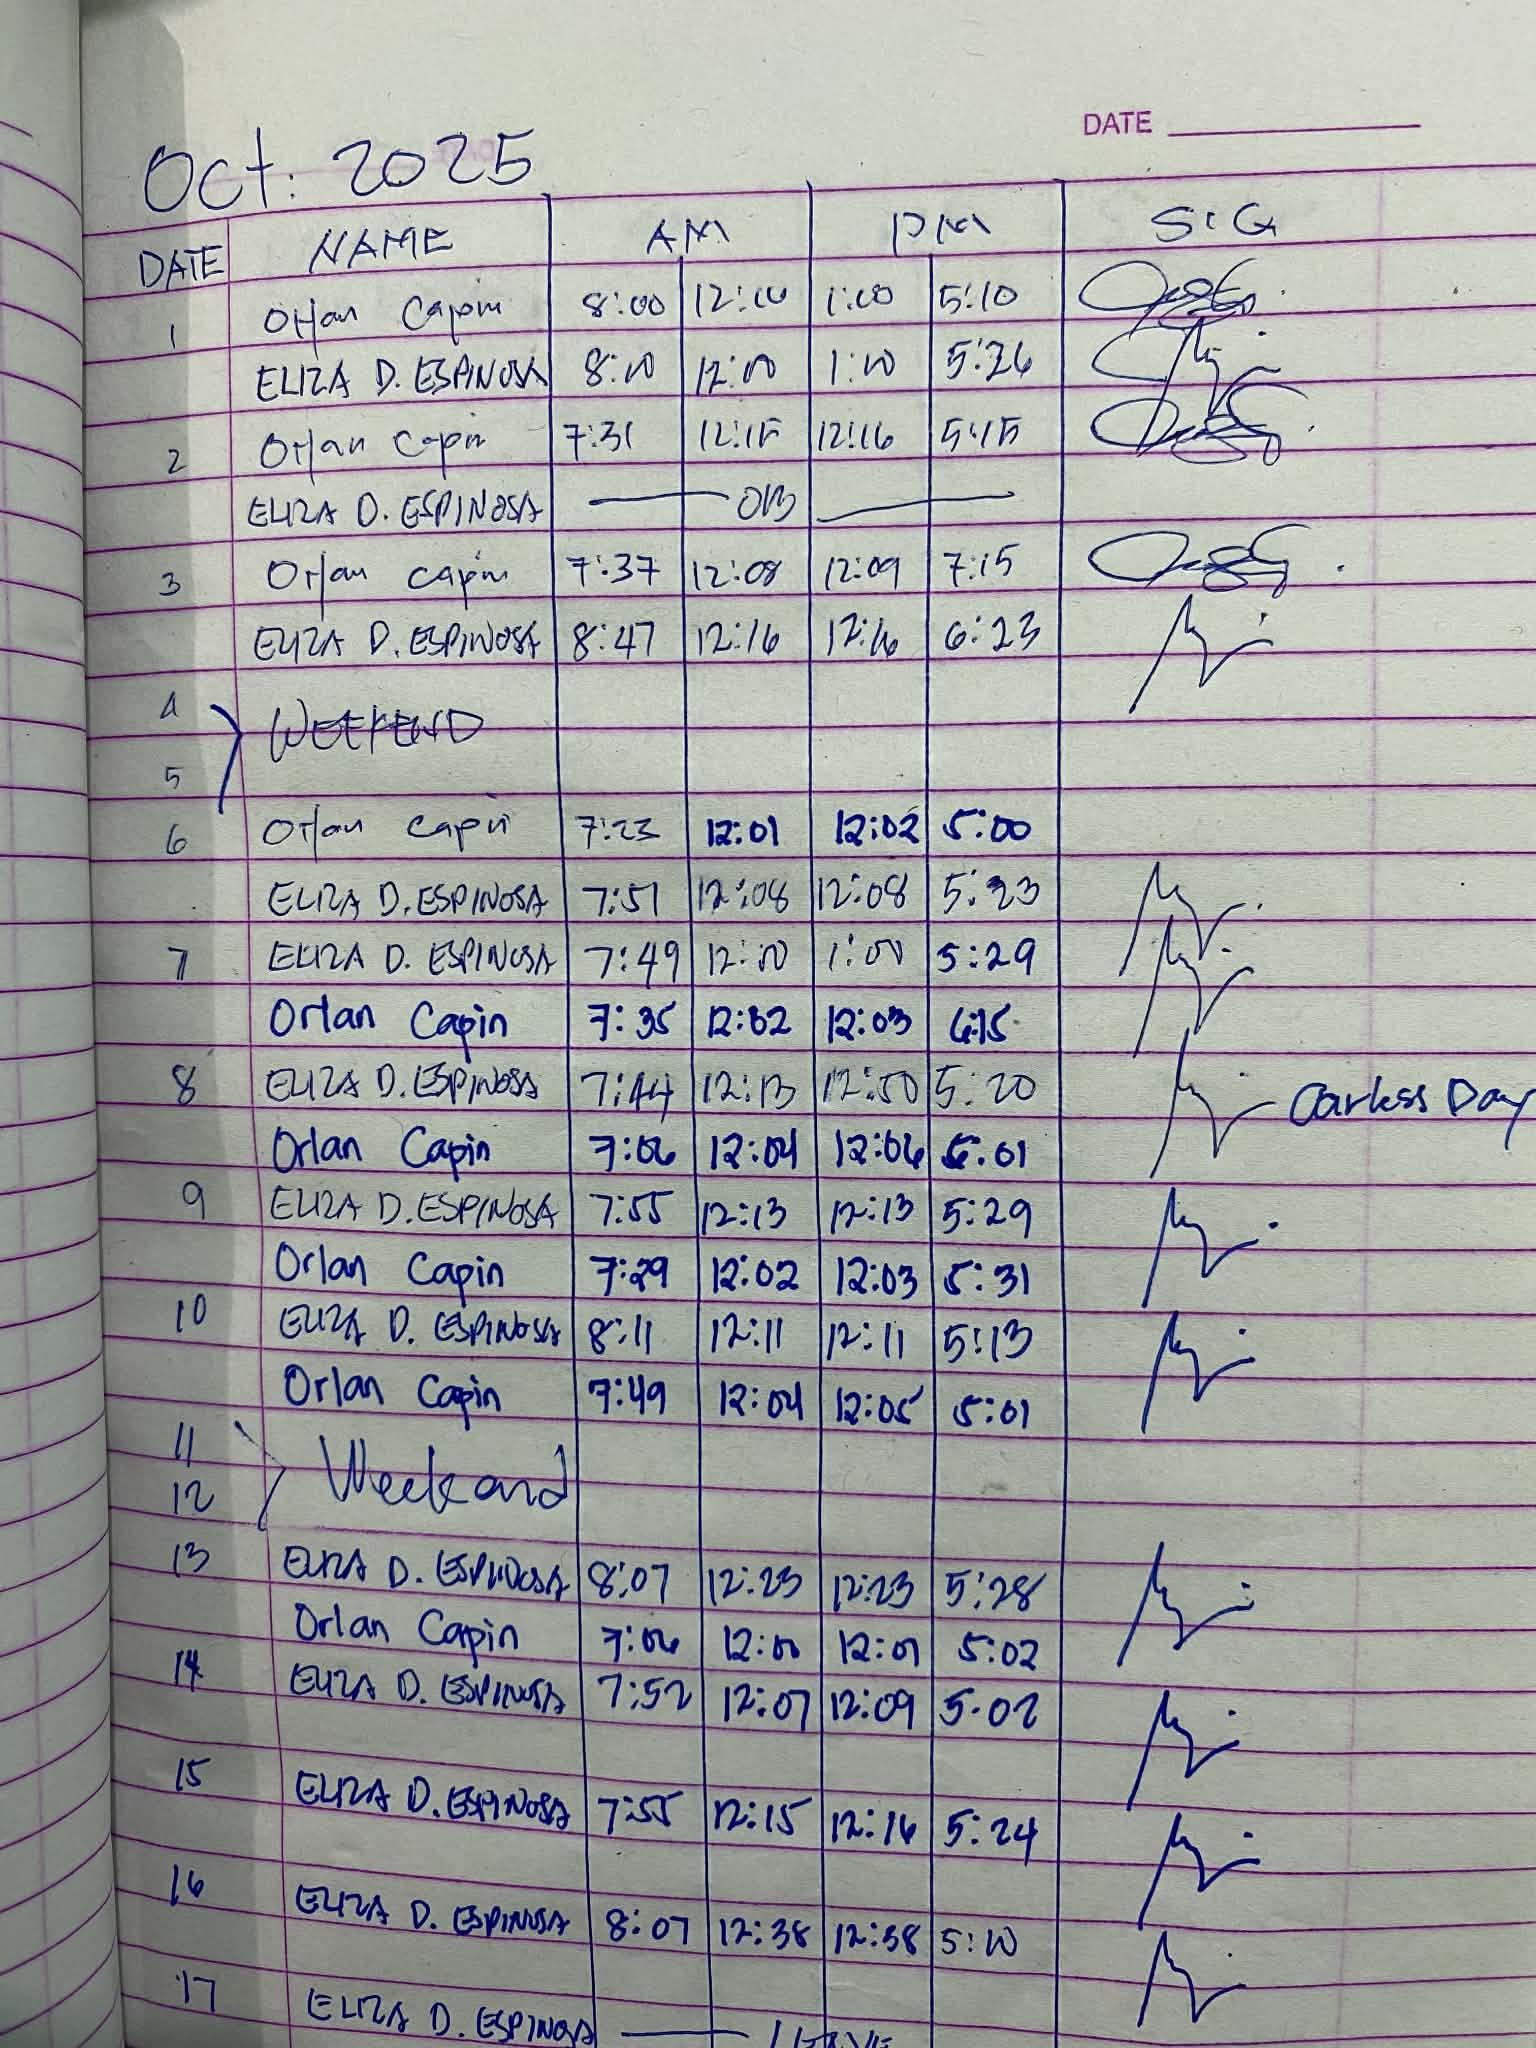 DATE
Oct. 2025
DATE NAME AM PM SIG
1 Orlan Capin 8:00 12:10 1:00 5:10
ELIZA D. ESPINOSA 8:10 12:00 1:00 5:26
2 Orlan Capin 7:31 12:15 12:16 5:15
ELIZA D. ESPINOSA OB
3 Orlan Capin 7:37 12:08 12:09 7:15
ELIZA D. ESPINOSA 8:47 12:16 12:16 6:23
4 WEEKEND
5
6 Orlan Capin 7:23 12:01 12:02 5:00
ELIZA D. ESPINOSA 7:51 12:08 12:08 5:23
7 ELIZA D. ESPINOSA 7:49 12:00 1:00 5:29
Orlan Capin 7:35 12:02 12:03 6:15
8 ELIZA D. ESPINOSA 7:44 12:13 12:50 5:20 Carless Day
Orlan Capin 7:06 12:04 12:06 5:01
9 ELIZA D. ESPINOSA 7:55 12:13 12:13 5:29
Orlan Capin 7:29 12:02 12:03 5:31
10 ELIZA D. ESPINOSA 8:11 12:11 12:11 5:13
Orlan Capin 7:49 12:04 12:05 5:01
11 Weekend
12
13 ELIZA D. ESPINOSA 8:07 12:23 12:23 5:28
Orlan Capin 7:06 12:00 12:01 5:02
14 ELIZA D. ESPINOSA 7:52 12:07 12:09 5:02
15 ELIZA D. ESPINOSA 7:55 12:15 12:16 5:24
16 ELIZA D. ESPINOSA 8:07 12:38 12:38 5:10
17 ELIZA D. ESPINOSA LEAVE